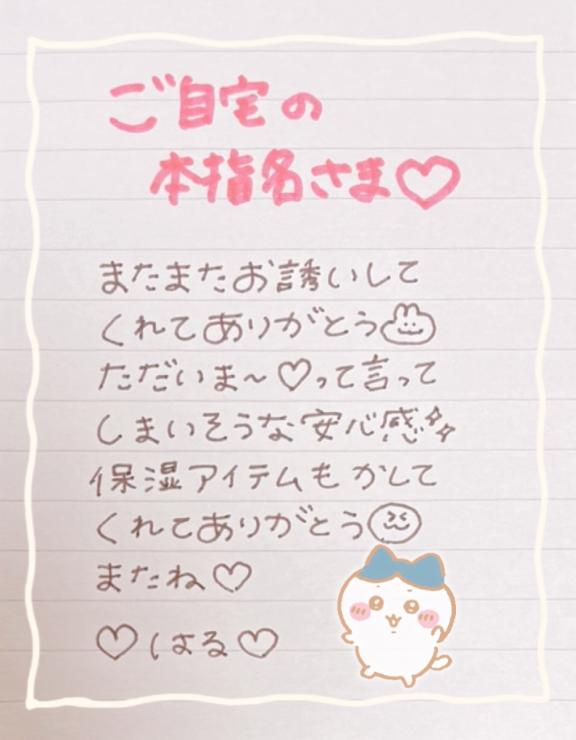 ご自宅の
本指名さま♡
またまたお誘いして
くれてありがとう
ただいま～♡って言って
しまいそうな安心感
保湿アイテムもかして
くれてありがとう
またね♡
♡はる♡